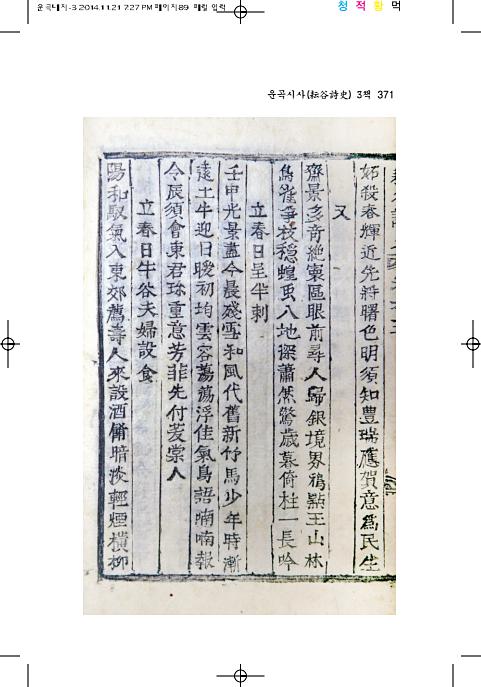 운곡시사-3 2014.11.21 7:27 PM 페이지89 매킬 입력
청 적 황 먹
운곡시사(耘谷詩史) 3책 371
妬殺春輝近先斜曙色明須知豊瑞應賀意爲民生
又
齊景多奇絶寰區眼前尋人歸銀境界鴉點玉山林
鳥雀爭枝穩蝗虫入地深蕭然驚歲暮倚柱一長吟
立春日呈半刺
壬申光景盡今晨殘雪和風代舊新竹馬少年時漸
遠土牛迎日暖初均雲容蕩蕩浮佳氣鳥語喃喃報
今辰須會東君珎重意芳菲先付爰棠人
立春日牛谷夫婦設食
陽和馭氣入東郊薦壽人來設酒肴暗淡輕煙橫柳